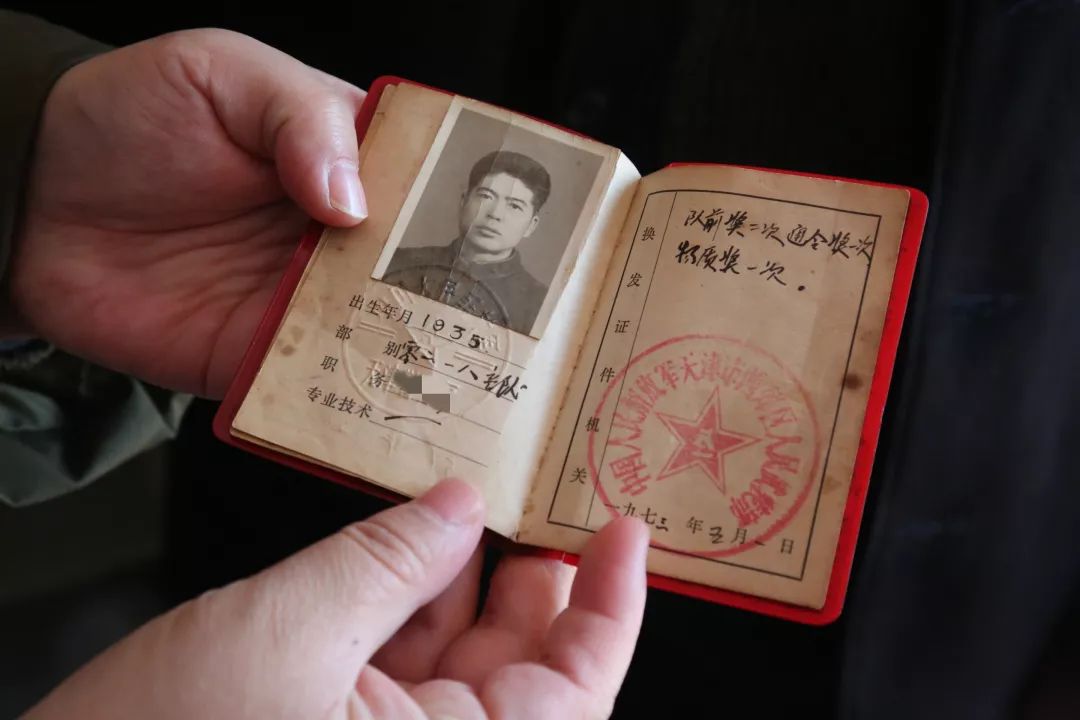 出生年月 1935.
部 别 零二一八部队
职 务
专业技术 一
换发证件机关
队前奖二次通令奖一次
物质奖一次.
中国人民解放军天津市 区人民武装部
八一
一九七三年五月一日